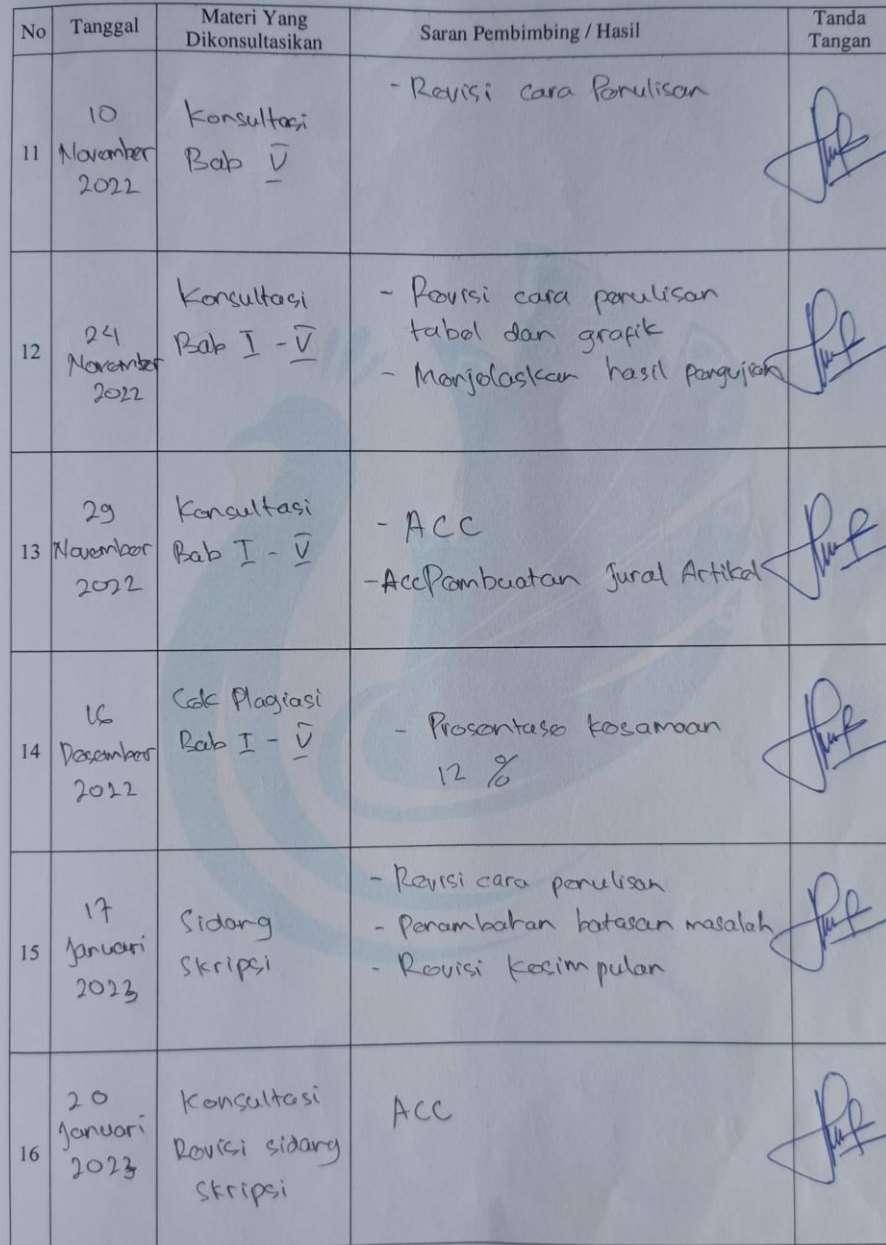 No Tanggal Materi Yang Dikonsultasikan Saran Pembimbing / Hasil Tanda Tangan
11
10
November
2022
Konsultasi
Bab V
- Revisi cara Penulisan
12
24
November
2022
Konsultasi
Bab I - V
- Revisi cara penulisan
tabel dan grafik
- Menjelaskan hasil pengujian
13
29
November
2022
Konsultasi
Bab I - V
- ACC
- Acc Pembuatan Jural Artikel
14
16
Desember
2022
Cek Plagiasi
Bab I - V
- Prosentase kesamaan
12 %
15
17
Januari
2023
Sidang
Skripsi
- Revisi cara penulisan
- Penambahan batasan masalah
- Revisi kesimpulan
16
20
Januari
2023
Konsultasi
Revisi sidang
Skripsi
ACC